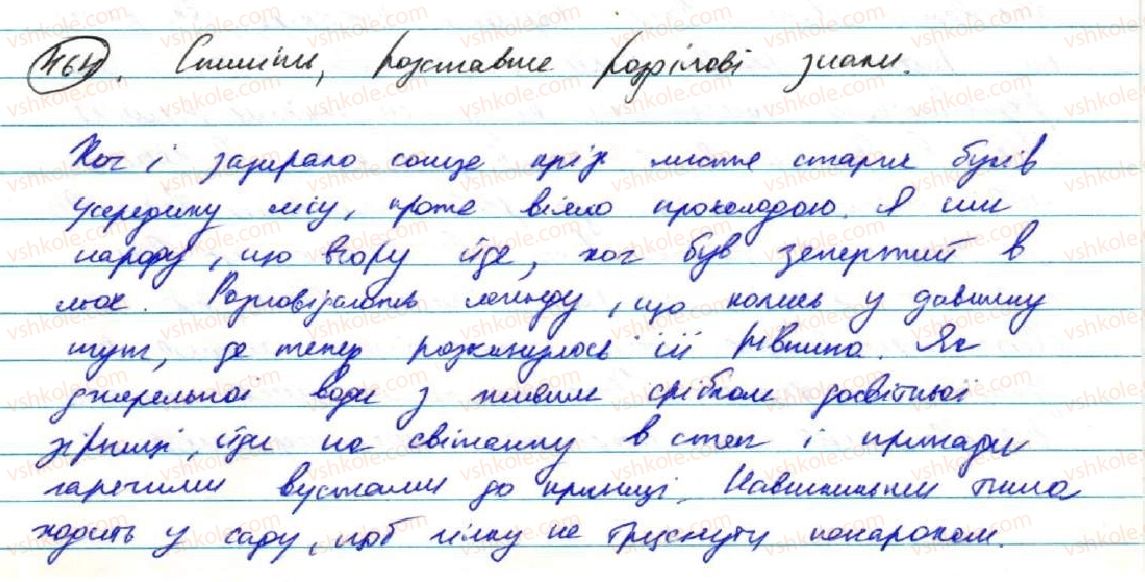 464. Спишіть, розставте розділові знаки.
Хоч і зазирало сонце крізь листя старих буків
усередину лісу, проте віяло прохолодою. Я син
народу, що вгору йде, хоч був запертий в
льох. Розповідають легенду, що колись у давнину
тут, де тепер розкинулась ця рівнина. Як
джерельної води з живим сріблом досвітньої
зірниці, йди на світанку в степ і припади
гарячими вустами до криниці. Навшпиньки тиша
ходить у саду, щоб гілку не тріснути ненароком.